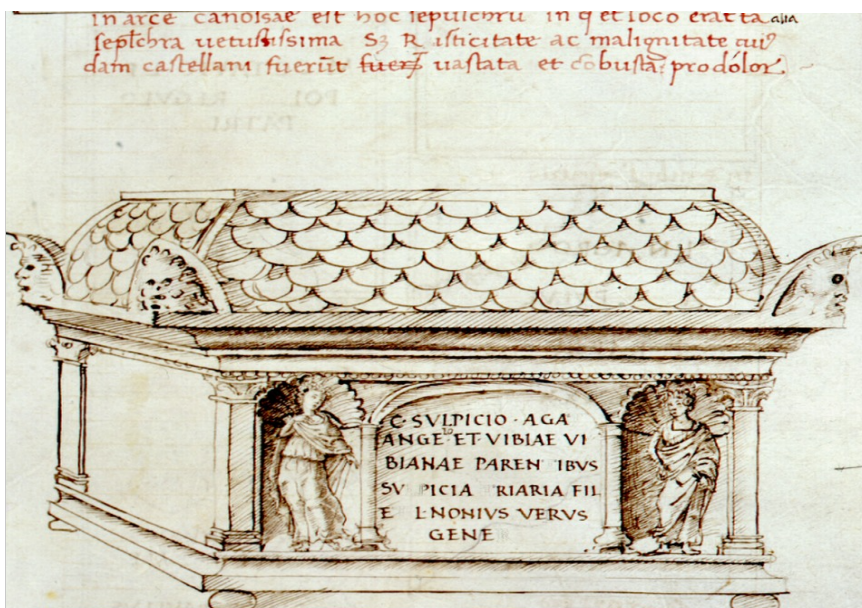 in arce canossae est hoc sepulchrū in q et loco erat ta alia
seplchra uetustissima Sʒ R isticitate ac malignitate cui9
dam castellani fuerūt fuer̄ uastata et cōbusta: pro dólor
C · SVLPICIO · AGA
ANGE TO ET VIBIAE VI
BIANAE PAREN IBVS
SV PICIA RIARIA FIL
E L · NONIVS VERVS
GENE